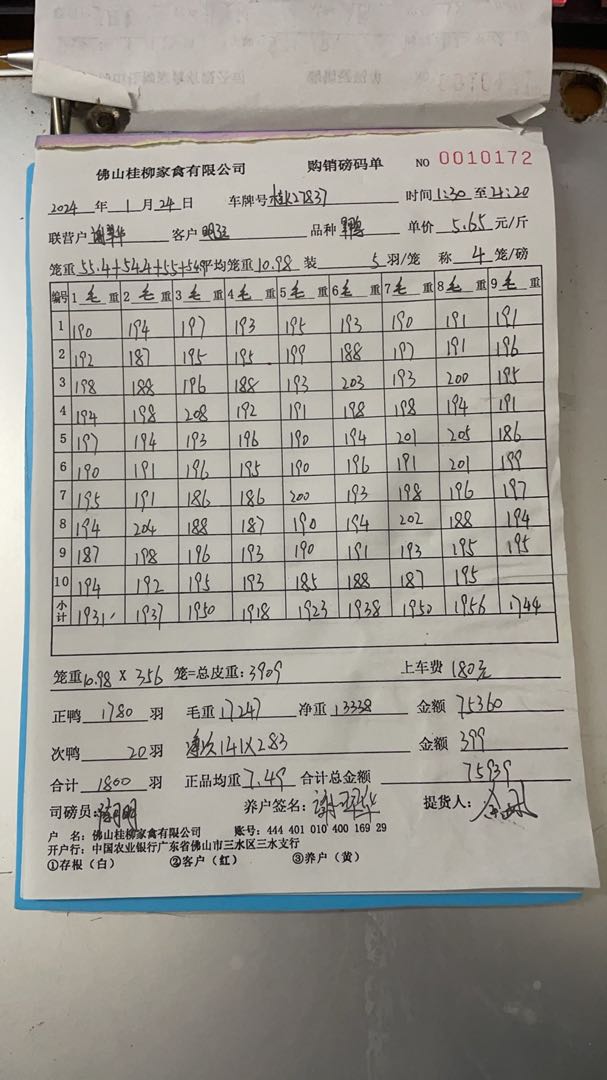 佛山桂柳家禽有限公司 购销磅码单 NO 0010172
2024 年 1 月 24 日 车牌号 桂K27837 时间 1:30 至 21:20
联营户 客户 明 品种 单价 5.65 元/斤
笼重 55.4+54.4+55+54.9 平均笼重 10.98 装 5 羽/笼 称 4 笼/磅
编号 1 毛 重 2 毛 重 3 毛 重 4 毛 重 5 毛 重 6 毛 重 7 毛 重 8 毛 重 9 毛 重
1 190 194 197 193 195 193 190 191 191
2 192 187 195 195 199 188 197 191 196
3 198 188 196 188 193 203 193 200 195
4 194 198 208 192 191 198 198 194 191
5 197 194 193 196 190 194 201 205 186
6 190 191 196 195 190 196 191 201 199
7 195 191 186 186 200 193 198 196 197
8 194 204 188 187 190 194 202 188 194
9 187 198 196 193 190 191 193 195 195
10 194 192 195 193 185 188 187 195
小计 1931 1937 1950 1918 1923 1938 1950 1956 1744
笼重 10.98 X 356 笼=总皮重: 3909 上车费 180元
正鸭 1780 羽 毛重 17247 净重 13338 金额 75360
次鸭 20 羽 141X2.83 金额 399
合计 1800 羽 正品均重 7.49 合计总金额 75939
司磅员: 养户签名: 谢 华 提货人:
户 名: 佛山桂柳家禽有限公司 账号: 444 401 010 400 169 29
开户行: 中国农业银行广东省佛山市三水区三水支行
①存根（白） ②客户（红） ③养户（黄）